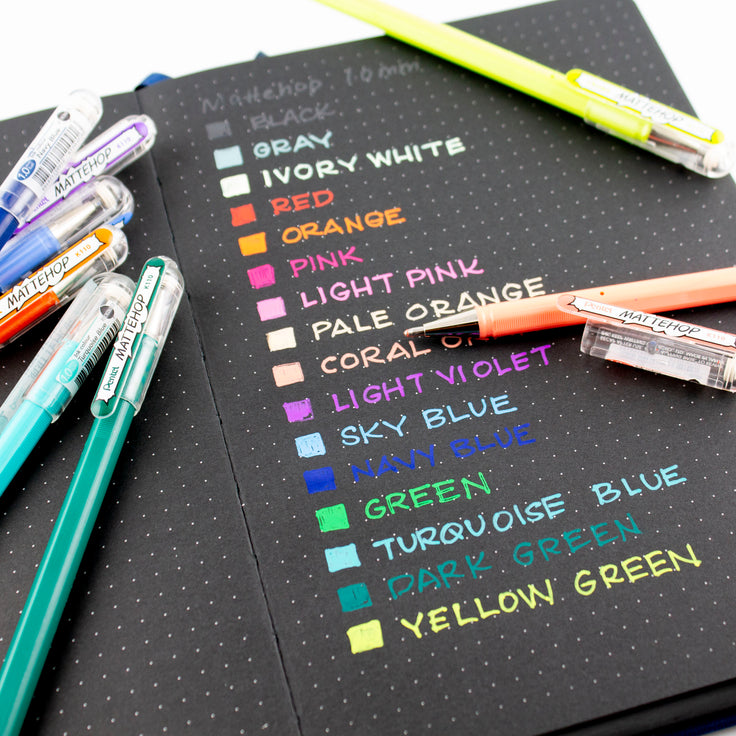 Mattehop 1.0mm
BLACK
GRAY
IVORY WHITE
RED
ORANGE
PINK
LIGHT PINK
PALE ORANGE
CORAL O
LIGHT VIOLET
SKY BLUE
NAVY BLUE
GREEN
TURQUOISE BLUE
DARK GREEN
YELLOW GREEN
MATTEHOP
1.0 Navy Blue
Pentel MATTEHOP
MATTEHOP K110
1.0 Turquoise Blue
Pentel MATTEHOP K110
Pentel MATTEHOP K110